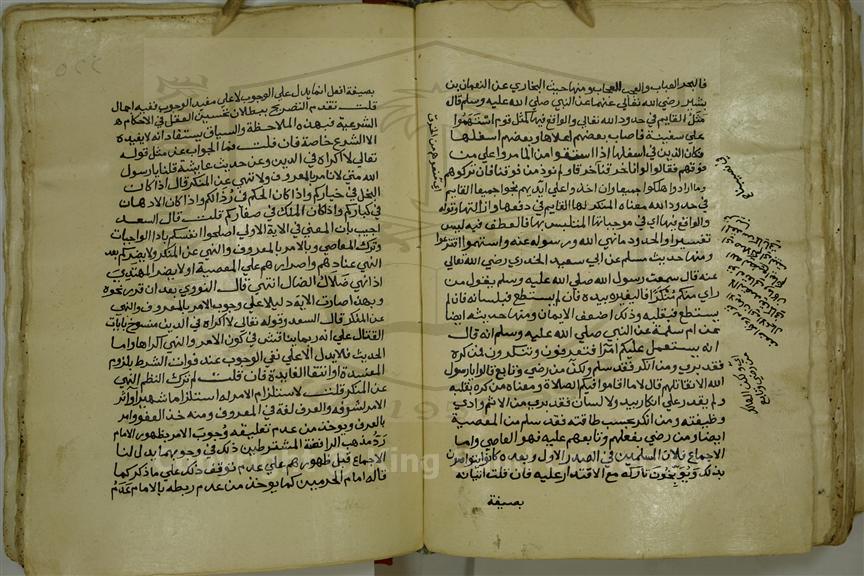 فالبحر العباب والعجب العجاب ومنها حديث البخاري عن النعمان بن
بشير رضي الله تعالى عنهما عن النبي صلى الله عليه وسلم قال
مثل القايم في حدود الله تعالى والواقع فيها كمثل قوم استهموا
على سفينة فاصاب بعضهم اعلاها وبعضهم اسفلها
فكان الذين في اسفلها اذا استقوا من الما مروا على من
فوقهم فقالوا لو انا خرقنا خرقا ولم نوذ من فوقنا فان تركوهم
وما ارادوا هلكوا جميعا وان اخذوا على ايديهم نجوا جميعا القايم
في حدود الله معناه المنكر لها القايم في دفعها وازالتها وقوله
والواقع فيها اي في موجباتها المتلبس بها فالعطف فيه ليس
تفسيرا والحدود ما نهى الله ورسوله عنه واستهموا اقترعوا
ومنها حديث مسلم عن ابي سعيد الخدري رضي الله تعالى
عنه قال سمعت رسول الله صلى الله عليه وسلم يقول من
راى منكم منكرا فليغيره بيده فان لم يستطع فبلسانه فان لم
يستطع فبقلبه وذلك اضعف الايمان ومنها حديثه ايضا
عن ام سلمة عن النبي صلى الله عليه وسلم انه قال
انه يستعمل عليكم امرا فتعرفون وتنكرون فمن كره
فقد بري ومن انكر فقد سلم ولكن من رضي وتابع قالوا يا رسول
الله الا نقاتلهم قال لا ما اقاموا فيكم الصلاة ومعناه من كره بقلبه
ولم يقدر على انكار بيد ولا لسان فقد بري من الاثم وادى
وظيفته ومن انكر بحسب طاقته فقد سلم من المعصية
ايضا ومن رضي بفعلهم وتابعهم عليه فهو العاصي واما
الاجماع فلان المسلمين في الصدر الاول وبعده كانوا يتواصون
بذلك ويوبخون تاركه مع الاقتدار عليه فان قلت اتيانه
بصيغة
بصيغة افعل انما يدل على الوجوب لا على مفيد الوجوب ففيه اجمال
قلت تقدم التصريح ببطلان تحسين العقل في الاحكام
الشرعية فبهذه الملاحظة والسياق يستفاد انه لا يفيده
الا الشرع خاصة فان قلت فما الجواب عن مثل قوله
تعالى لا اكراه في الدين وعن حديث عايشة قلنا يا رسول
الله متى لا نامر بالمعروف ولا ننهى عن المنكر قال اذا كان
البخل في خياركم واذا كان الحكم في رذالكم واذا كان الادهان
في كباركم واذا كان الملك في صغاركم قلت قال السعد
اجيب بان المعنى في الاية الاولى اصلحوا انفسكم باداء الواجبات
وترك المعاصي وبالامر بالمعروف والنهي عن المنكر ولا يضركم بعد
النهي عنادهم واصرارهم على المعصية او لا يضر المهتدي
اذا نهى ضلال الضال انتهى قال النووي بعد ان قرر نحوه
وبهذا صارت الاية دليلا على وجوب الامر بالمعروف والنهي
عن المنكر قال السعد وقوله تعالى لا اكراه في الدين منسوخ بايات
القتال على انه ربما يناقش في كون الامر والنهي اكراها واما
الحديث فلا يدل الا على نفي الوجوب عند فوات الشرط بلزوم
المفسدة او انتفا الفايدة فان قلت لم ترك النظم النهي
عن المنكر قلت لاستلزام الامر له استلزاما شهيرا واثر
الامر لشرفه والعرف لغة في المعروف ومنه خذ العفو وامر
بالعرف ويوخذ من عدم تعليقه وجوب الامر بظهور الامام
رد مذهب الرافضة المشترطين ذلك في وجوبه ما يدل لنا
الاجماع قبل ظهورهم على عدم توقف ذلك على ما ذكر كما
قاله امام الحرمين كما يوخذ من عدم ربطه بالامام عدم